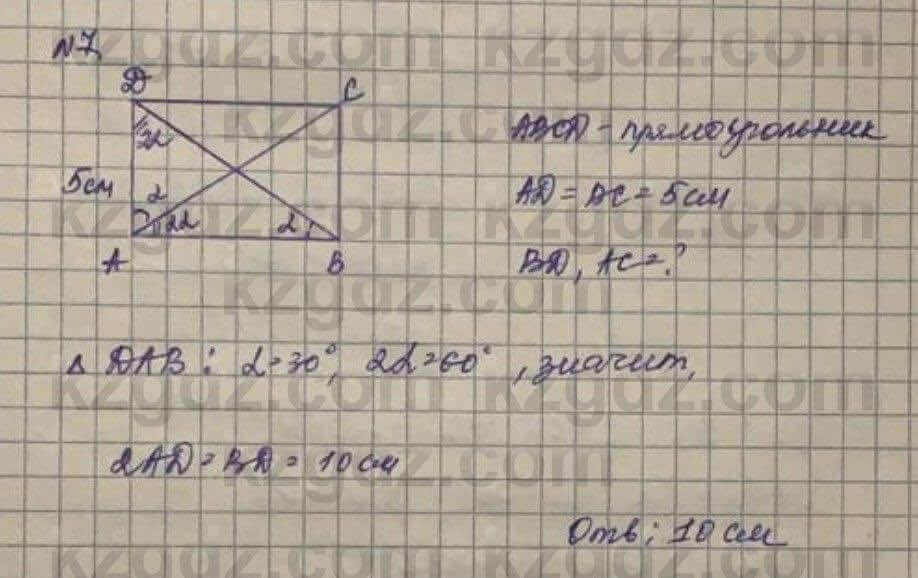 №7
D C
2α
5см α
2α α
A B
ABCD - прямоугольник
AD = BC = 5см
BD, AC = ?
△ DAB: α = 30°, 2α = 60°, значит,
2AD = BD = 10см
Отв: 10 см
kzgdz.com